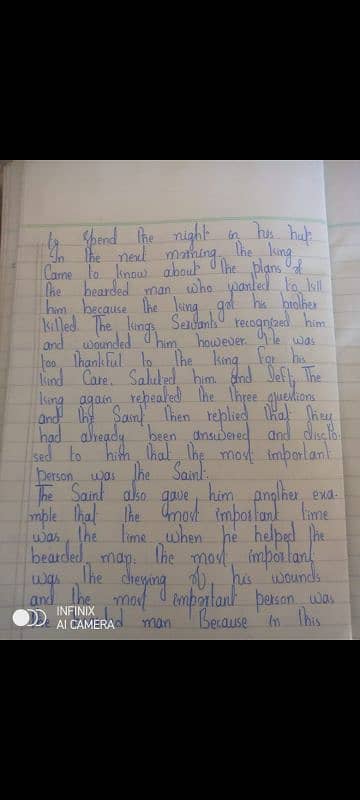 to spend the night in his hut.
In the next morning, the king
Came to know about the plans of
the bearded man who wanted to kill
him because the king got his brother
killed. The kings Servants recognized him
and wounded him however He was
too thankful to the king for his
kind Care. Saluted him and left, The
king again repeated the three questions
and the Saint then replied that they
had already been answered and disclo-
sed to him that the most important
person was the Saint.
The Saint also gave him another exa-
mple that the most important time
was the time when he helped the
bearded man. The most important
was the dressing of his wounds
and the most important person was
man Because in this
INFINIX
AI CAMERA